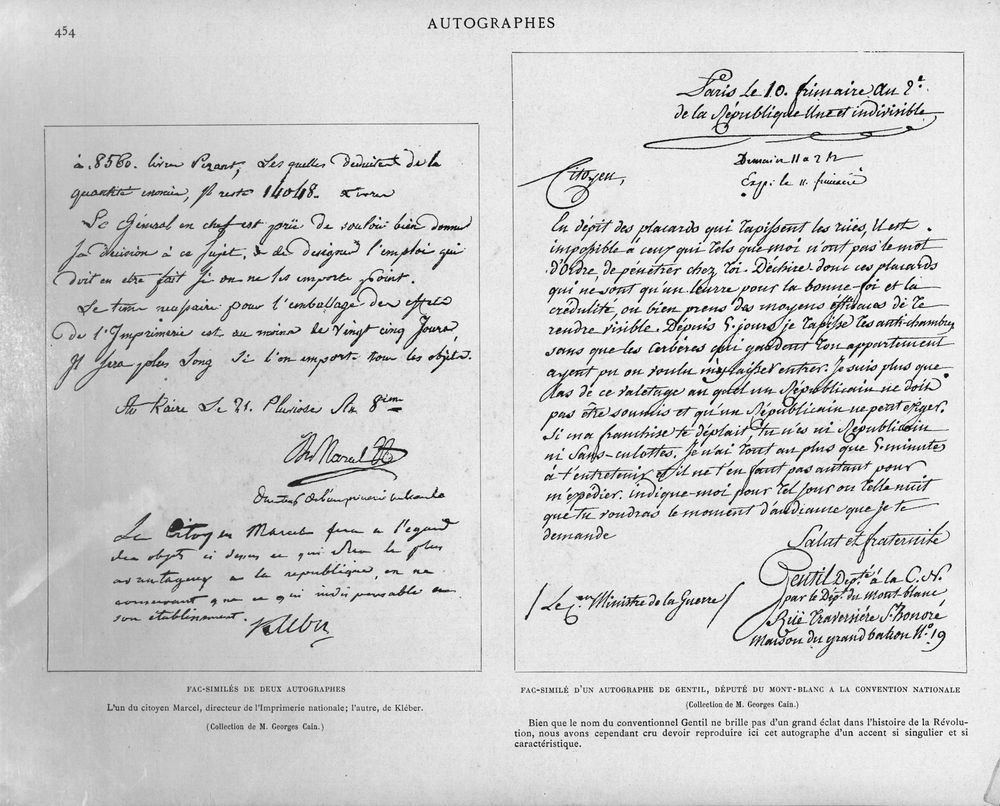 454
AUTOGRAPHES
à 8560. livres Pezant, Lesquelles Deduites de la
quantité enoncée, Il reste 14048. Livres
Le Général en chef est prié de vouloir bien donner
sa décision à ce sujet, & de designer l'emploi qui
doit en etre fait si on ne les emporte point.
Le tems necessaire pour l'emballage des effets
de l'Imprimerie est au moins de vingt cinq Jours
Il sera plus long si l'on emporte tous les objets.
Au Kaire Le 21. Pluviose An 8ime
Marcel
Directeur de l'imprimerie nationale
Le Citoyen Marcel fera a l'egard
des objets ci dessus ce qui sera le plus
avantageux a la republique, en ne
conservant que ce qui indispensable au
son établissement.
Kléber
FAC-SIMILÉS DE DEUX AUTOGRAPHES
L'un du citoyen Marcel, directeur de l'Imprimerie nationale; l'autre, de Kléber.
(Collection de M. Georges Cain.)
Paris Le 10. frimaire an 2e.
de la République Une et indivisible
Demain 11 a 2 h
Exp. le 11. frimaire
Citoyen,
En dépit des placards qui tapissent les rües, Il est
impossible à ceux qui tels que moi n'ont pas le mot
d'Ordre, de penétrer chez toi. Déchire donc ces placards
qui ne sont qu'un leurre pour la bonne-foi et la
crédulité, ou bien prens des moyens efficaces de te
rendre visible. Depuis 5. jours je tapisse tes anti-chambres
sans que les Cerbères qui gardent ton appartement
ayent pu ou voulu m'y laisser entrer. Je suis plus que
las de ce valetage au quel un Républicain ne doit
pas être soumis et qu'un Républicain ne peut exiger.
Si ma franchise te déplait, tu n'es ni Républicain
ni Sans-culottes. Je n'ai tout au plus que 5. minutes
à t'entretenir et il ne t'en faut pas autant pour
m'expédier. indique-moi pour tel jour ou telle nuit
que tu voudras le moment d'audiance que je te
demande
Salut et fraternité
Gentil Dépté à la C. N.
par le Dépt. du Mont-blanc
Rüe Traversière St Honoré
Maison du grand balion No 19
/ Le Cen Ministre de la Guerre /
FAC-SIMILÉ D'UN AUTOGRAPHE DE GENTIL, DÉPUTÉ DU MONT-BLANC A LA CONVENTION NATIONALE
(Collection de M. Georges Cain.)
Bien que le nom du conventionnel Gentil ne brille pas d'un grand éclat dans l'histoire de la Révolu-
tion, nous avons cependant cru devoir reproduire ici cet autographe d'un accent si singulier et si
caractéristique.